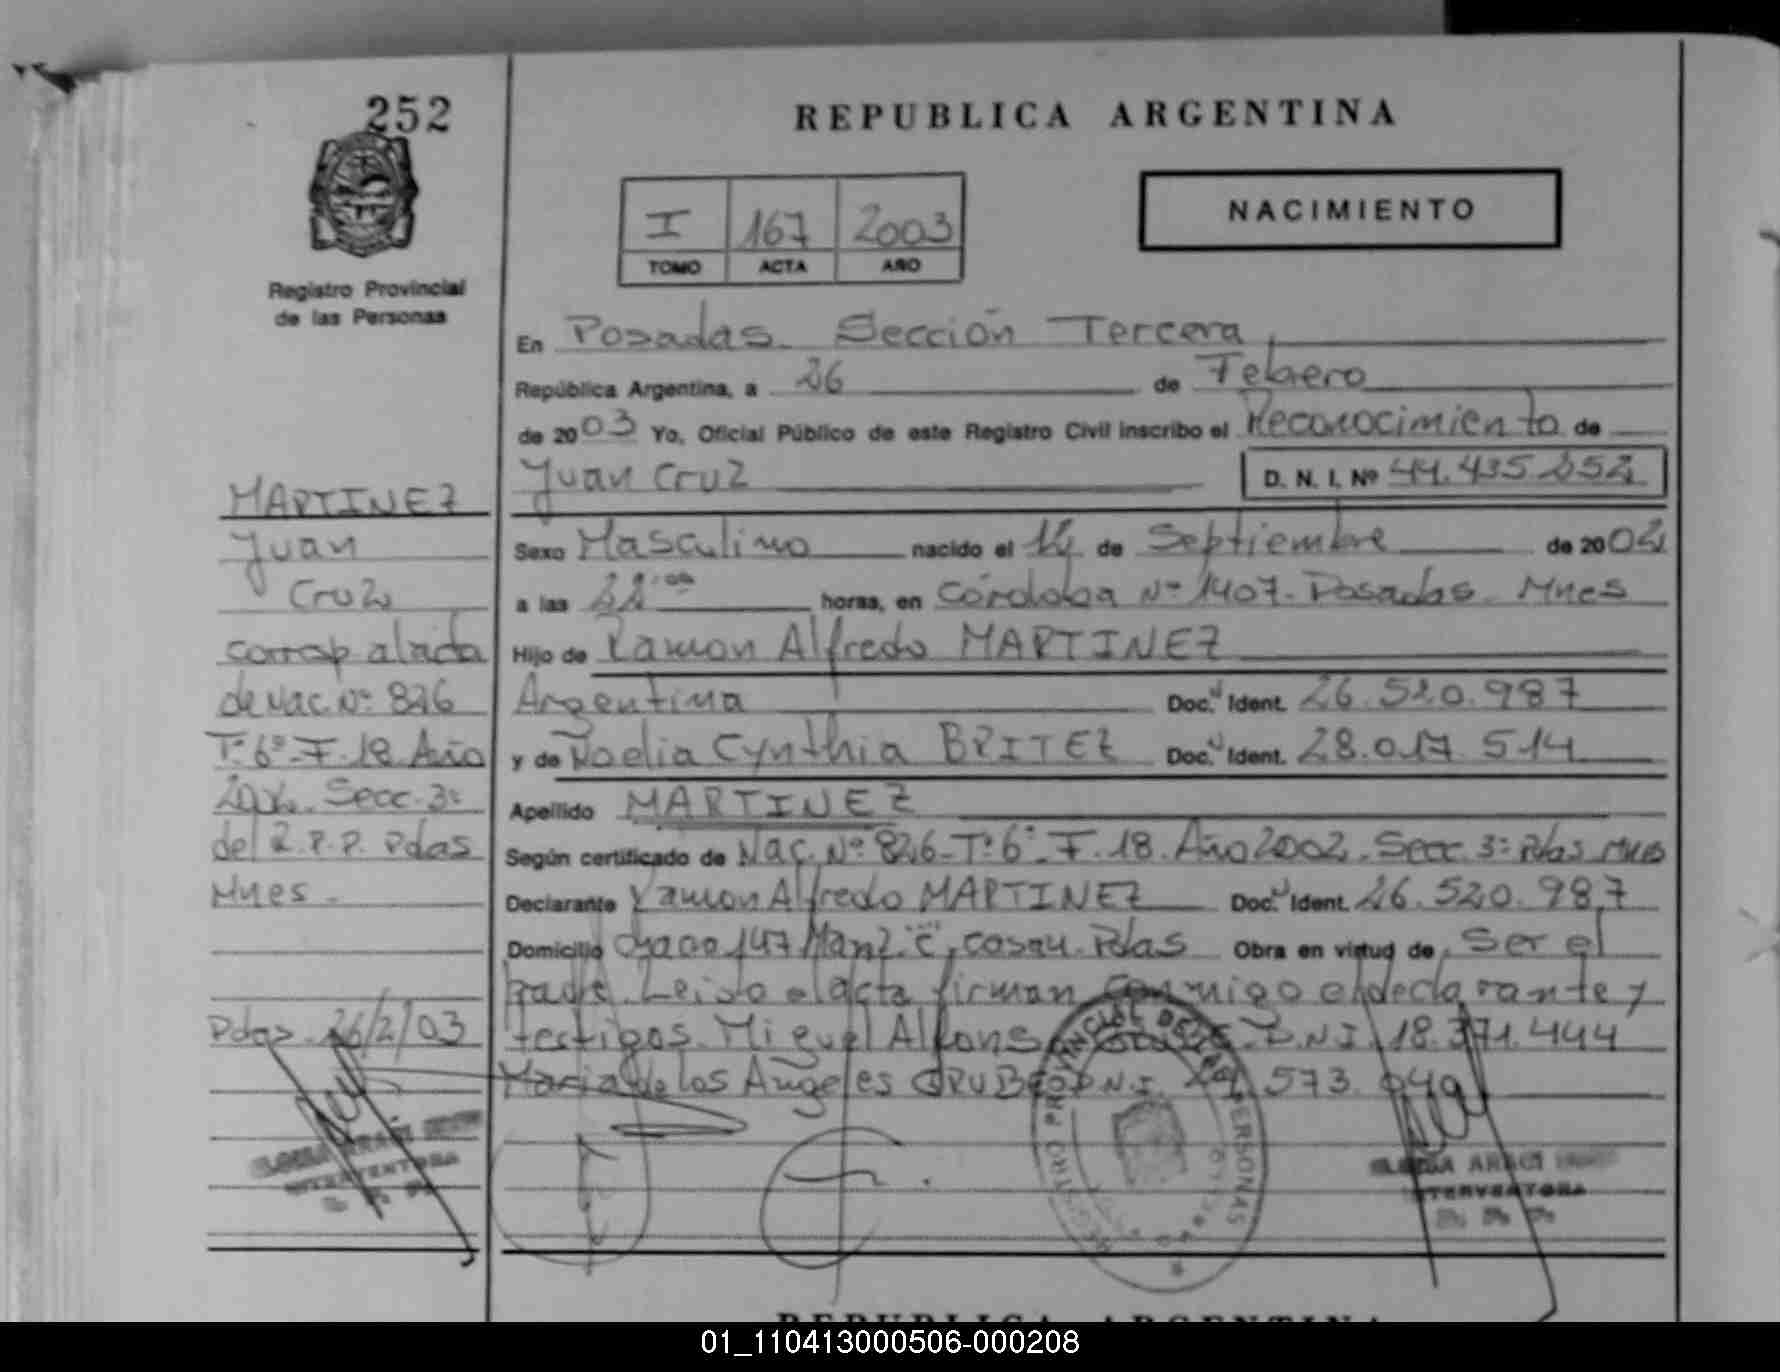 252
REPUBLICA ARGENTINA
I 167 2003
TOMO ACTA AÑO
NACIMIENTO
Registro Provincial
de las Personas
En Posadas. Sección Tercera
República Argentina, a 26 de Febrero
de 2003 Yo, Oficial Público de este Registro Civil inscribo el Reconocimiento de
Juan Cruz D. N. I. Nº 44.435.252
Sexo Masculino nacido el 12 de Septiembre de 2002
a las 22:00 horas, en Córdoba Nº 1407. Posadas. Mnes
Hijo de Ramon Alfredo MARTINEZ
Argentina Doc. Ident. 26.520.987
y de Noelia Cynthia BRITEZ Doc. Ident. 28.017.514
Apellido MARTINEZ
Según certificado de Nac. Nº 826-Tº 6º-F.18. Año 2002. Secc. 3ª Pdas Mnes
Declarante Ramon Alfredo MARTINEZ Doc. Ident. 26.520.987
Domicilio 147 Manz. "C", Pdas Obra en virtud de Ser el
padre. Leido el acta firman conmigo el declarante y
testigos. Miguel D.N.I. 18.371.444
Maria de los Angeles D.N.I. 573.
MARTINEZ
Juan
Cruz
corresp al acta
de nac. Nº 826
Tº 6º-F.18. Año
2002. Secc. 3ª
del R.P.P. Pdas
Mnes.
Pdas. 26/2/03
REGISTRO PROVINCIAL DE LAS PERSONAS
INTERVENTORA
INTERVENTORA
REPUBLICA ARGENTINA
01_110413000506-000208